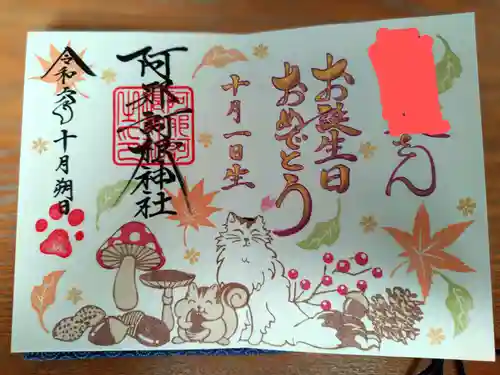 お誕生日
おめでとう
十月一日生
阿邪訶根神社
令和六年
十月朔日